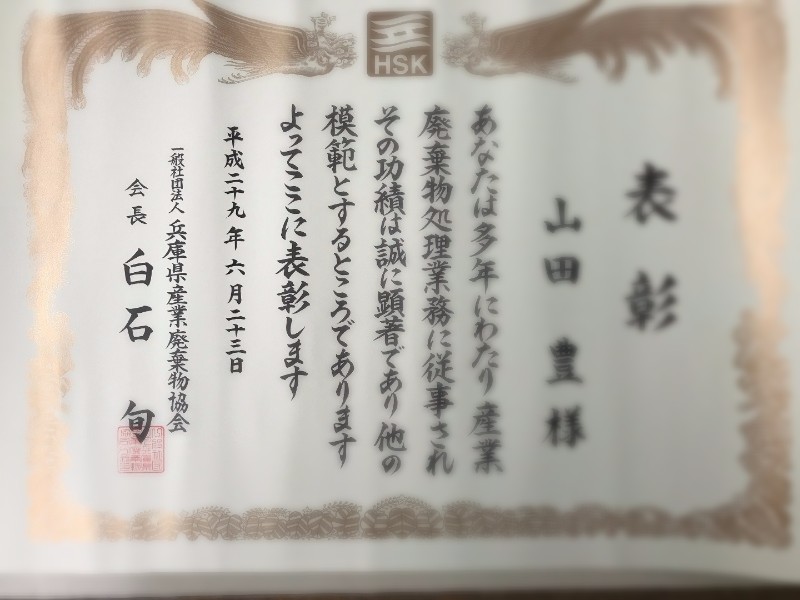 HSK
表彰
山田 豊 様
あなたは多年にわたり産業
廃棄物処理業務に従事され
その功績は誠に顕著であり他の
模範とするところであります
よってここに表彰します
平成二十九年六月二十三日
一般社団法人 兵庫県産業廃棄物協会
会長 白石 旬